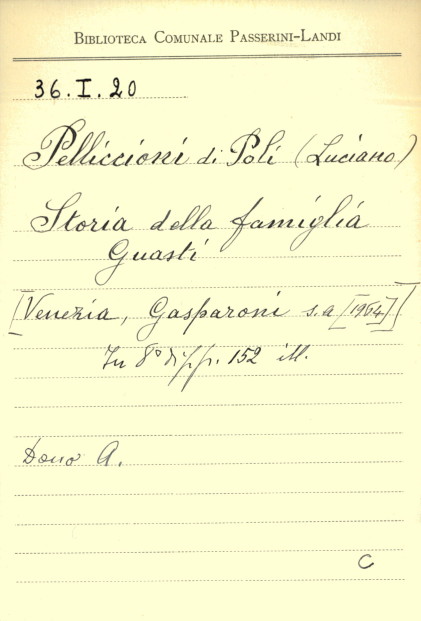 BIBLIOTECA COMUNALE PASSERINI-LANDI
36.I.20
Pelliccioni di Poli (Luciano)
Storia della famiglia
Guasti
[Venezia, Gasparoni s.a [1964]]
In 8° di pp. 152 ill.
Dono A.
C